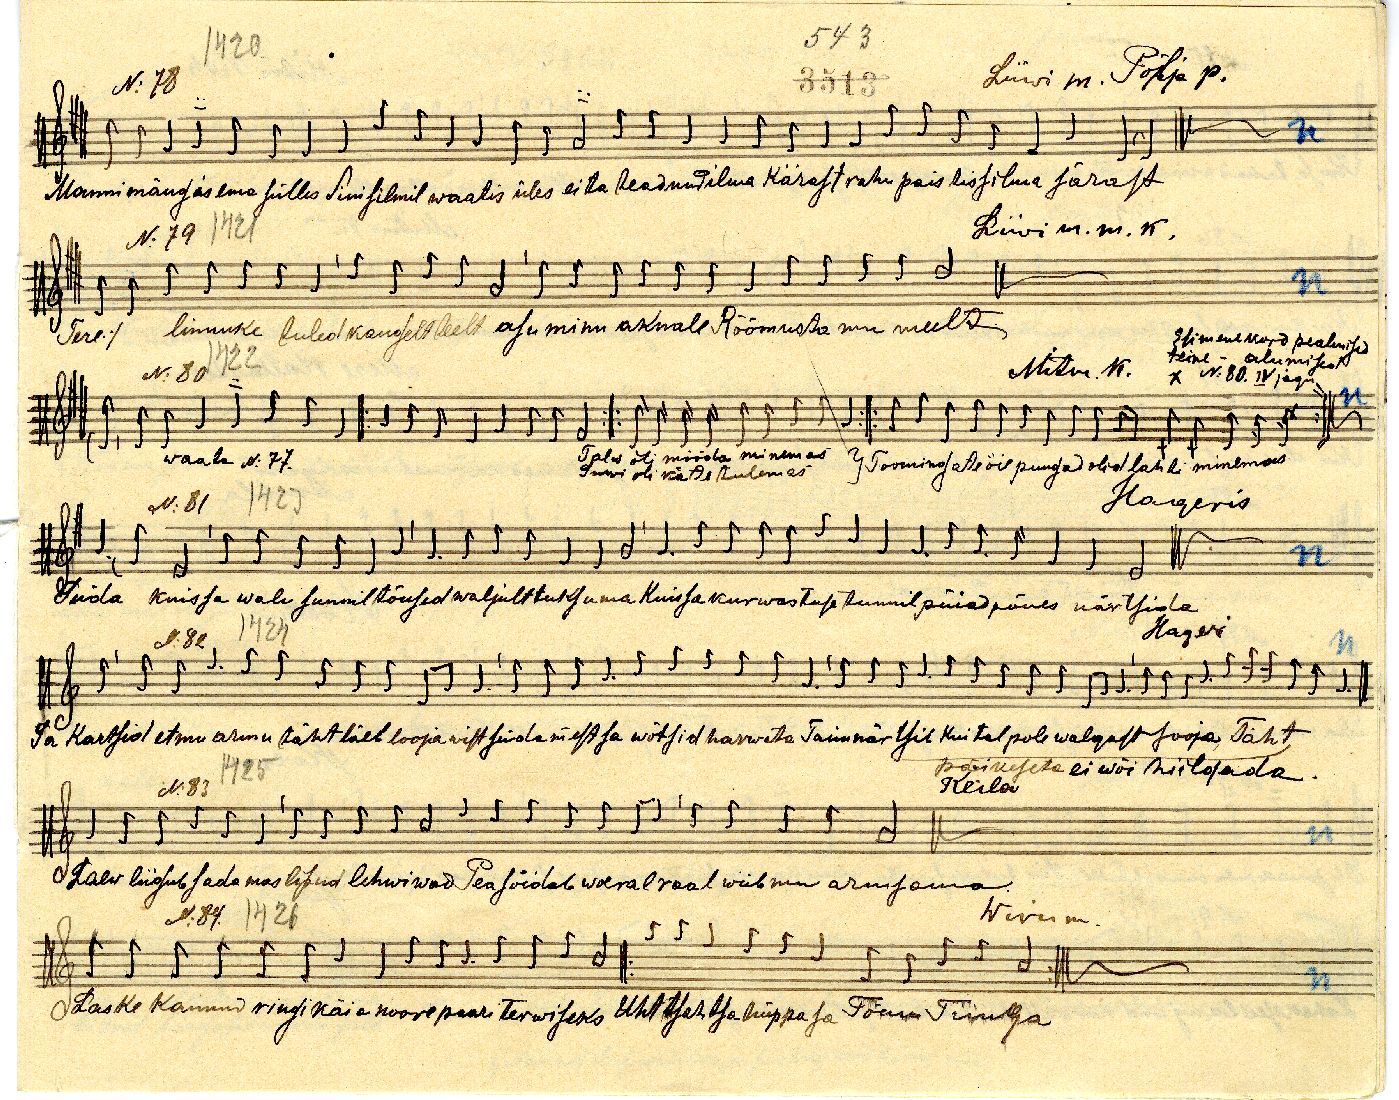 1420
543
3513
N: 78
Liiwi m. Põhja p.
Manni mängis ema sülles Sinisilmil waatis üles ei ta teadnud ilma kärast rahu pais tis silma särast
N: 79 1421
Liiwi m. m. K.
Tere :/ linnuke tuled kaugelt teelt asu minu aknale Rõõmusta mu meelt
N: 80 1422
Mitm. K.
Esimene kord pealmised
teine - alumised
x N: 80. IV jagu
waata N: 77.
Talw oli mööda minemas
Suwi oli kätte tulemas
Toomingate õie pungad olid lahti minemas
N: 81 1423
Hageris
Süda kuis sa walu sunnil tõused waljult tuksuma Kuis sa kurwastuse tunnil püiad põues närtsida
N: 82 1424
Hageri
Sa Kartsid et mu armu täht läeb looja wist süda mest sa wõtsid harwata Taim närtsib kui tal pole walgust sooja, Täht
päikeseta ei wõi hiilgada.
N: 83 1425
Keila
Laew liigub sada mas lipud lehwiwad Pea sõidab woeral raal wiib mu armsama.
N: 84. 1426
Wiru m.
Laske kannud ringi käia noorepaari terwiseks Uht tsah tsa hüppa sa Tõnu Tiiuga